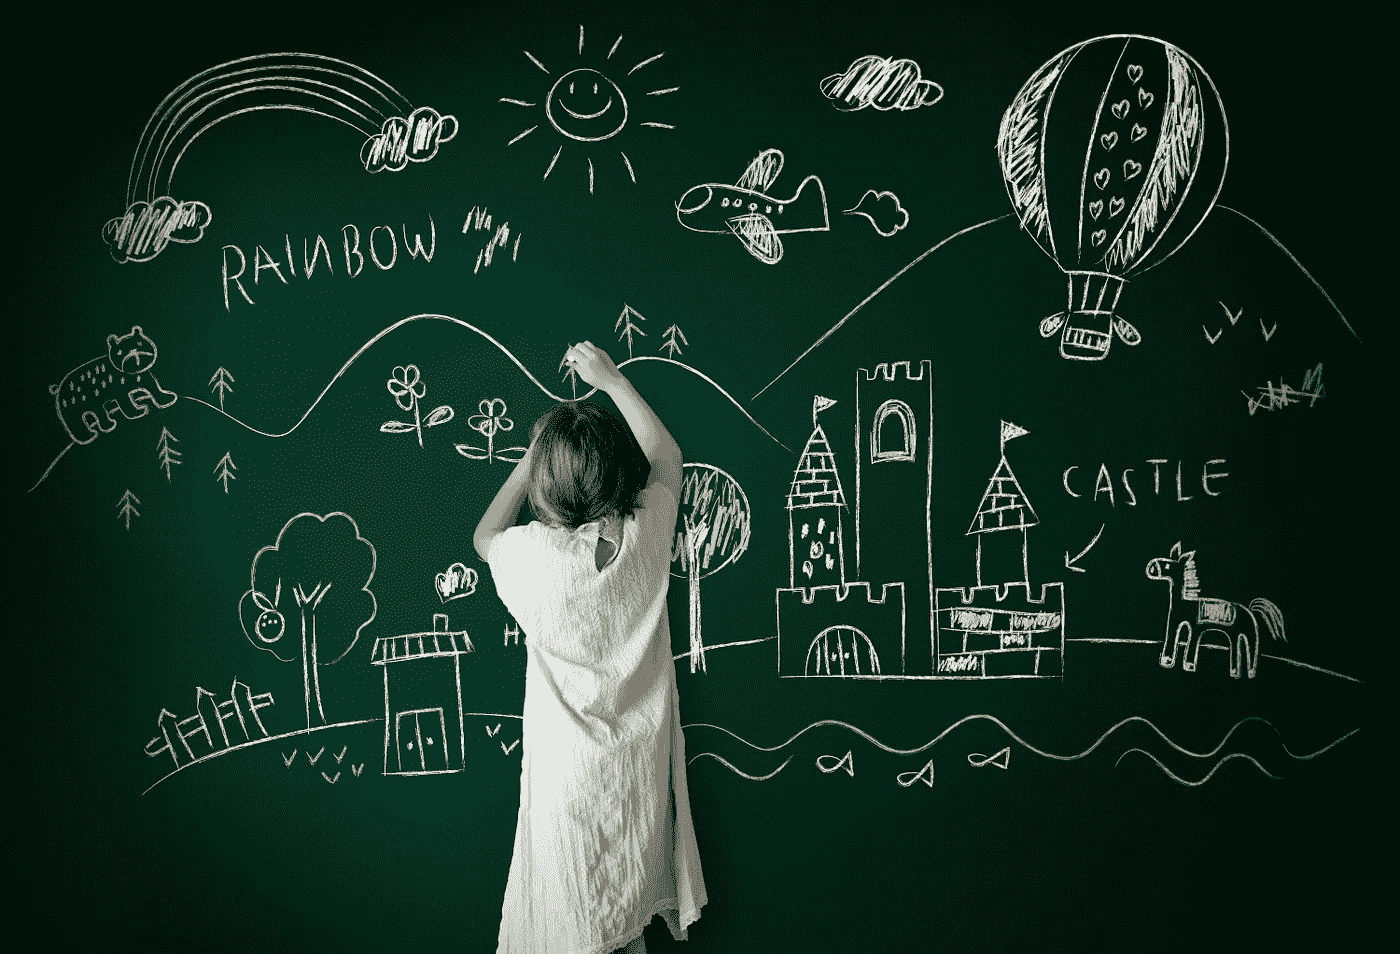 RAINBOW
CASTLE
H